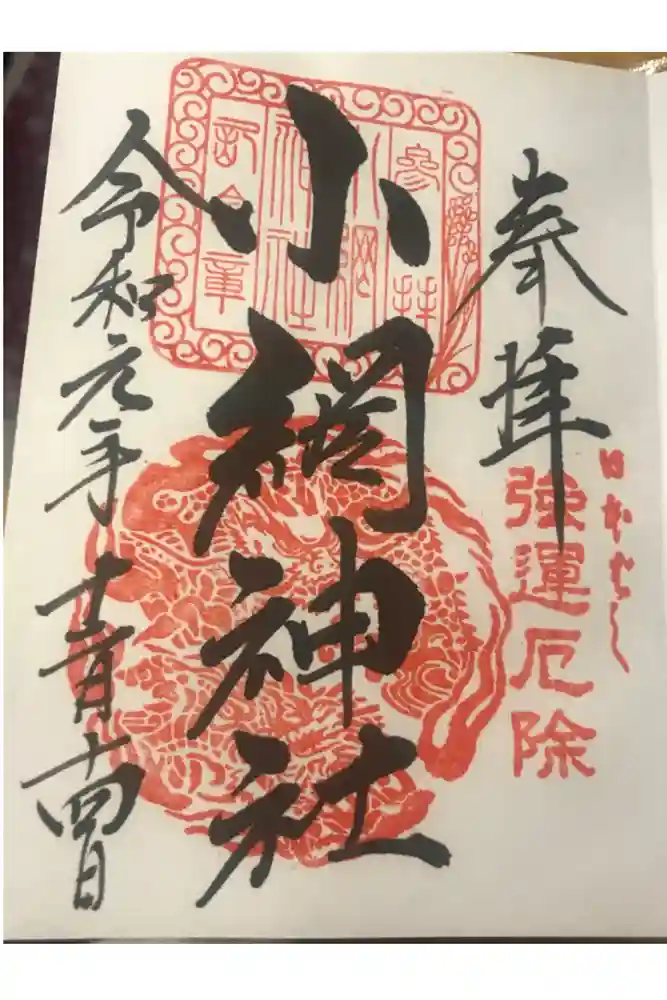 奉拝
日本ばし
強運厄除
參拝
小網
神社
記念章
小網神社
令和元年十二月十四日